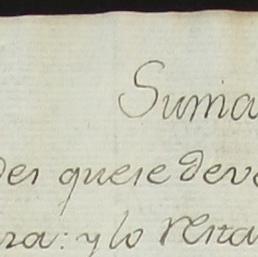 Suma
des que se deve
ra: y lo resta